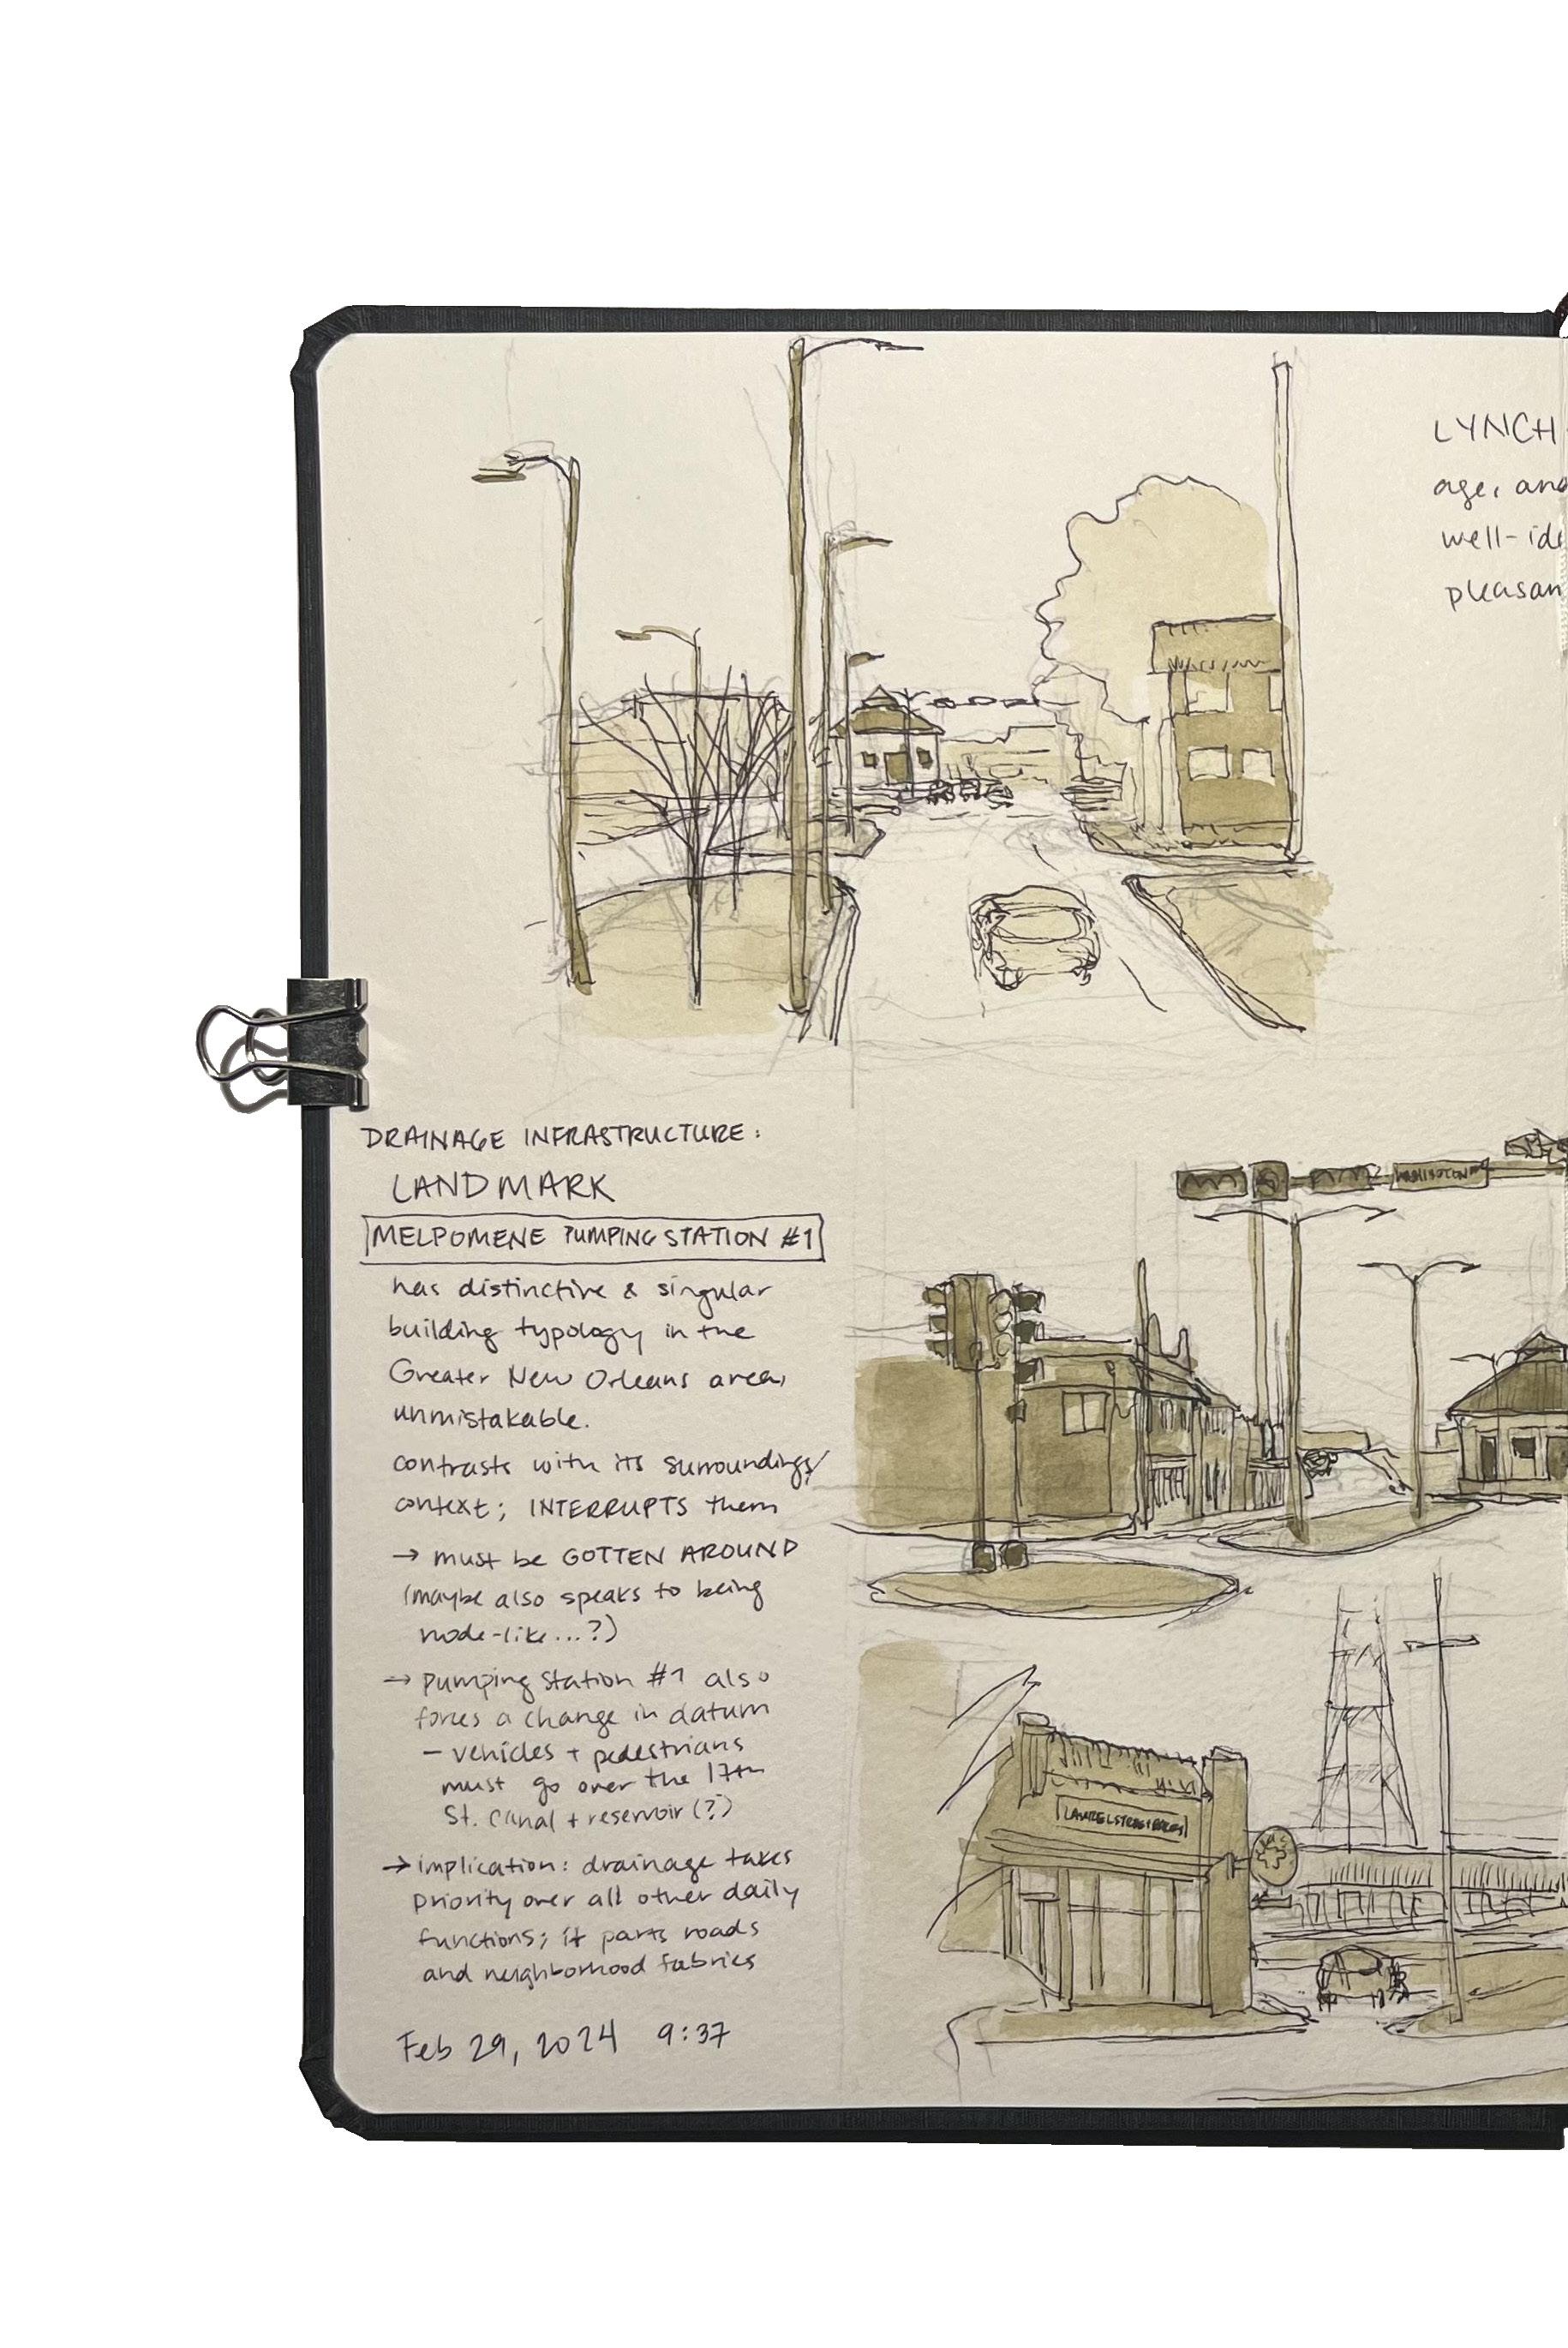 LYNCH
age, and
well-ide
pleasan
DRAINAGE INFRASTRUCTURE:
LANDMARK
MELPOMENE PUMPING STATION #1
has distinctive & singular
building typology in the
Greater New Orleans area,
unmistakable.
contrasts with its surroundings/
context; INTERRUPTS them
→ must be GOTTEN AROUND
(maybe also speaks to being
node-like...?)
→ Pumping Station #1 also
forces a change in datum
- vehicles + pedestrians
must go over the 17th
St. Canal + reservoir (?)
→ implication: drainage takes
priority over all other daily
functions; it parts roads
and neighborhood fabrics
Feb 29, 2024 9:37
WASHINGTON